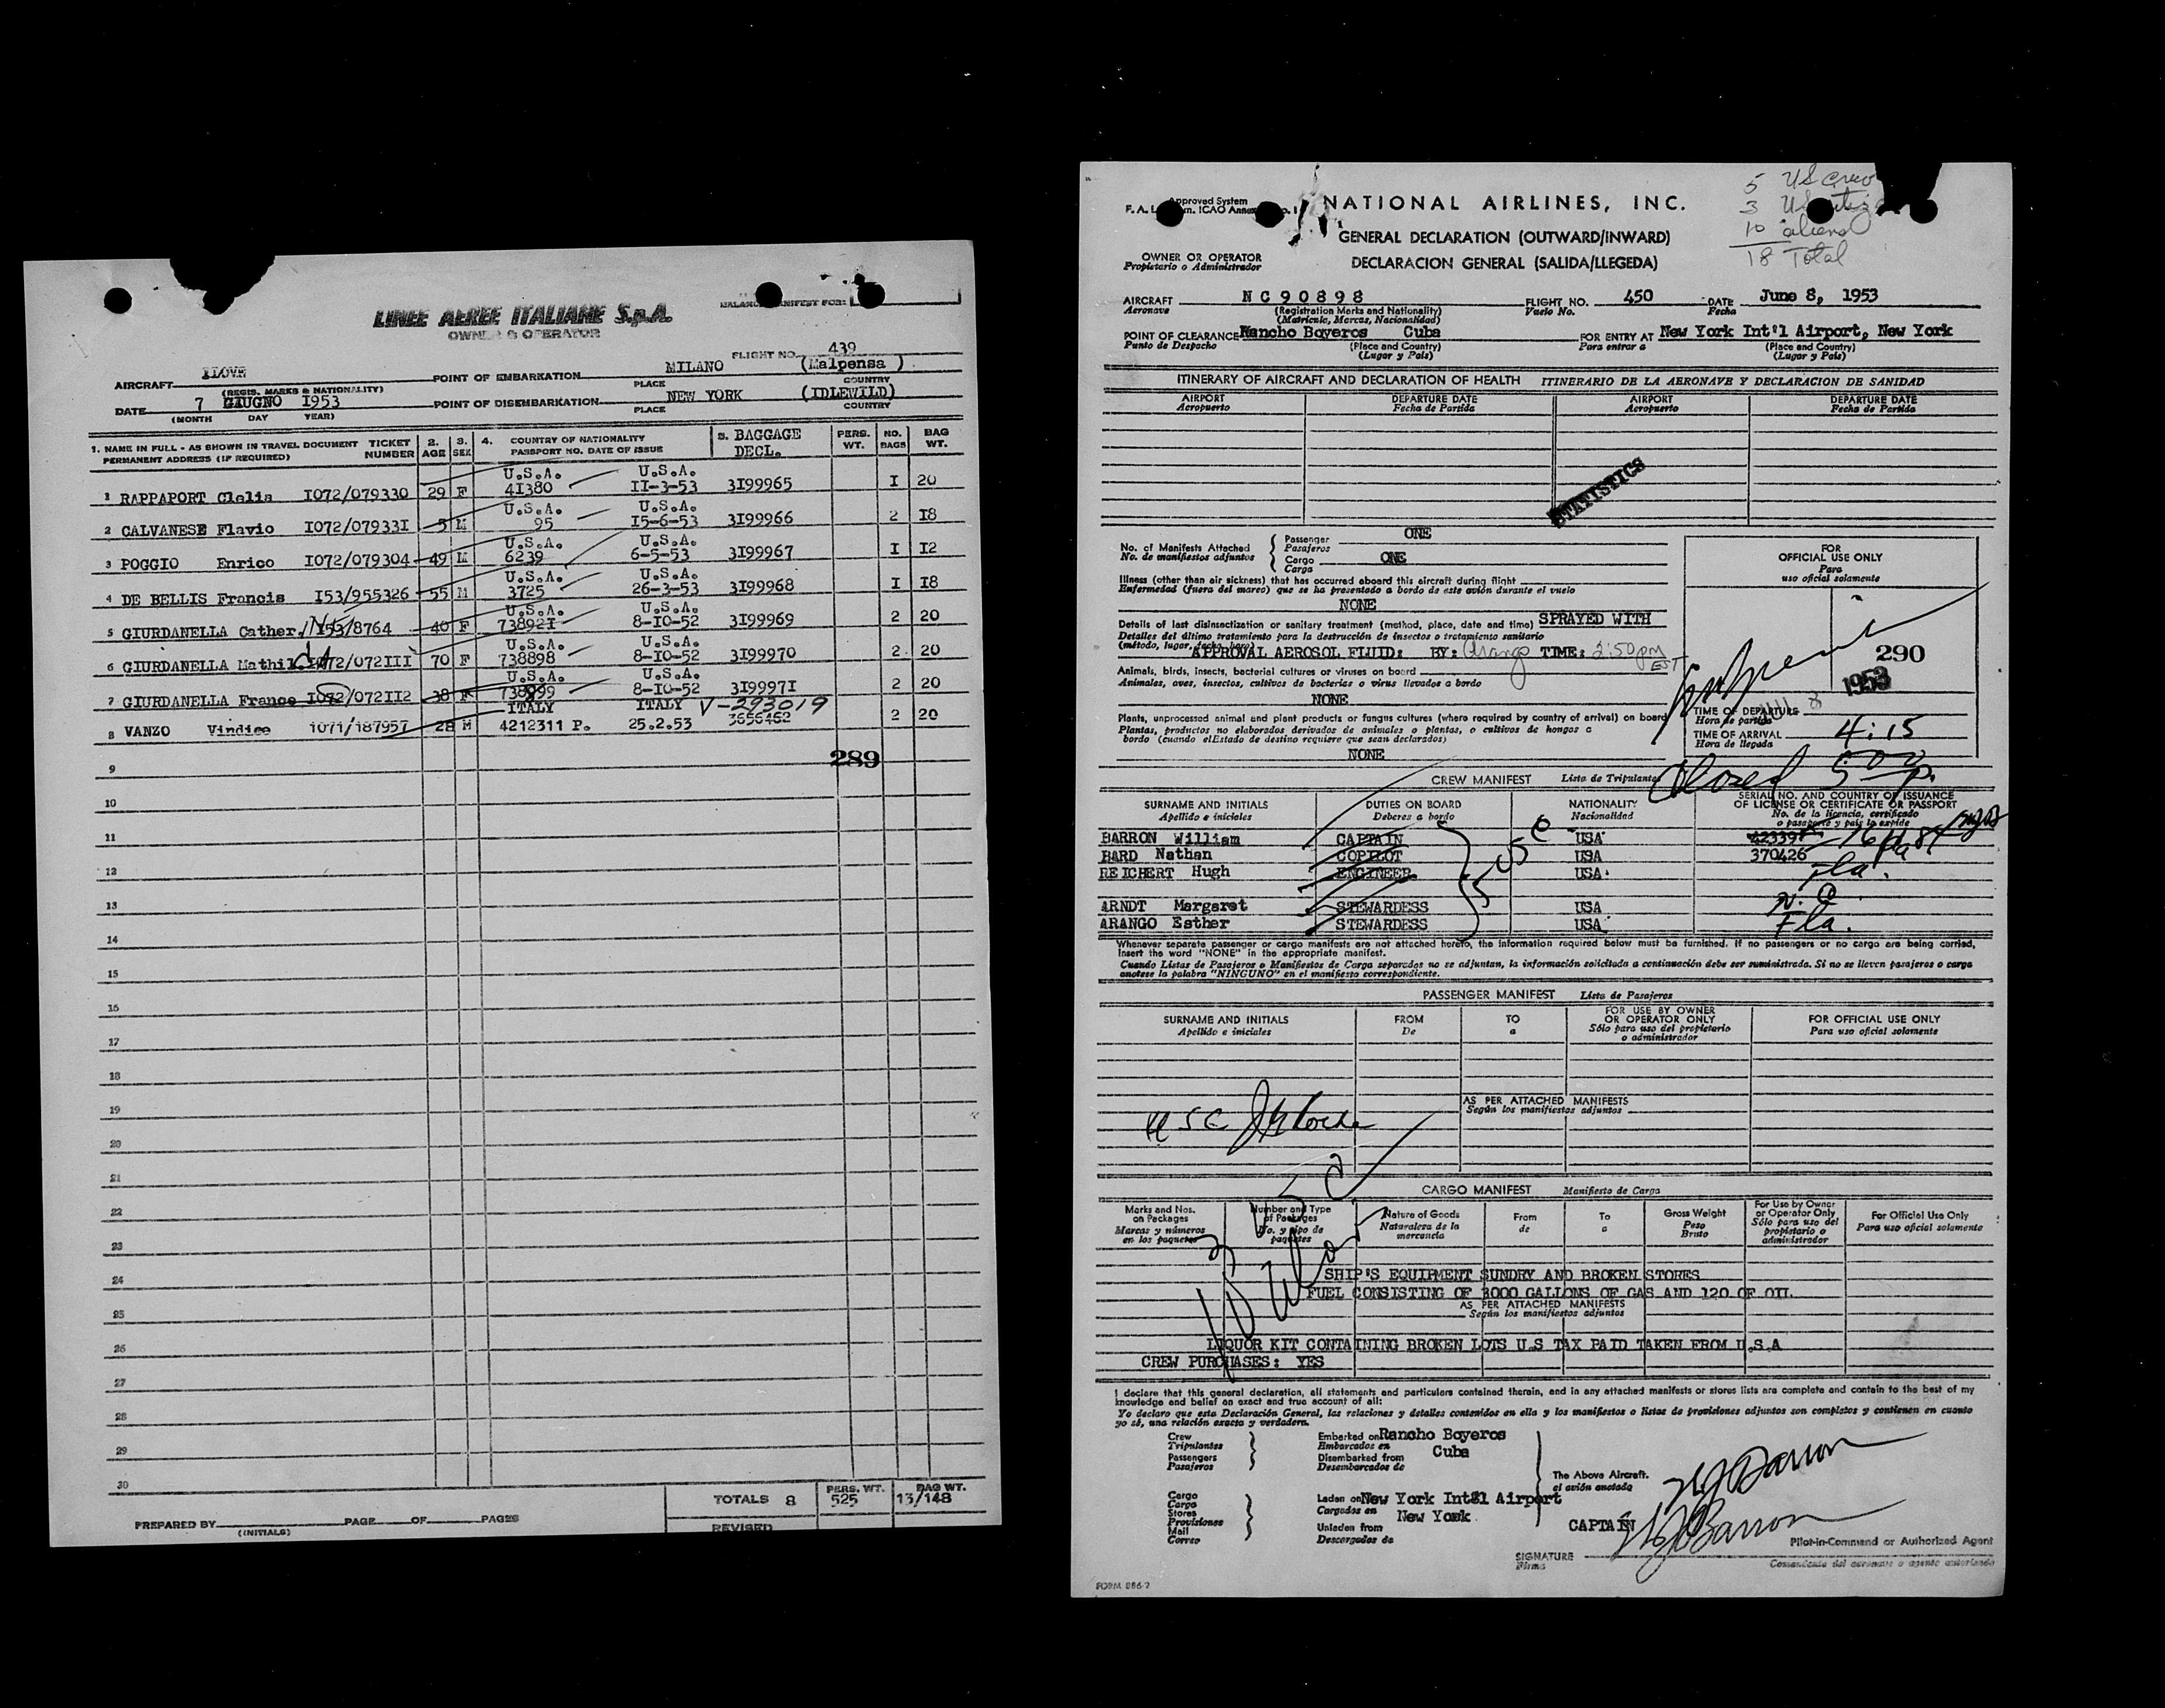 LINEE AEREE ITALIANE S.p.A.
OWNER & OPERATOR
FLIGHT NO. 439
AIRCRAFT ILOVE
(REGIS. MARKS & NATIONALITY)
POINT OF EMBARKATION MILANO (Malpensa)
PLACE COUNTRY
DATE 7 GIUGNO 1953
(MONTH DAY YEAR)
POINT OF DISEMBARKATION NEW YORK (IDLEWILD)
PLACE COUNTRY
1. NAME IN FULL - AS SHOWN IN TRAVEL DOCUMENT TICKET 2. 3. 4. COUNTRY OF NATIONALITY 5. BAGGAGE PERS. NO. BAG
PERMANENT ADDRESS (IF REQUIRED) NUMBER AGE SEX PASSPORT NO. DATE OF ISSUE DECL. WT. BAGS WT.
U.S.A. U.S.A.
1 RAPPAPORT Clelia I072/079330 29 F 41380 II-3-53 3I99965 I 20
U.S.A. U.S.A.
2 CALVANESE Flavio I072/07933I 5 M 95 I5-6-53 3I99966 2 I8
U.S.A. U.S.A.
3 POGGIO Enrico I072/079304 49 M 6239 6-5-53 3I99967 I I2
U.S.A. U.S.A.
4 DE BELLIS Francis I53/955326 55 M 3725 26-3-53 3I99968 I I8
U.S.A. U.S.A.
5 GIURDANELLA Cather. I53/8764 40 F 73892I 8-I0-52 3I99969 2 20
U.S.A. U.S.A.
6 GIURDANELLA Mathil I072/072III 70 F 738898 8-I0-52 3I99970 2 20
U.S.A. U.S.A.
7 GIURDANELLA France I072/072II2 38 F 738899 8-I0-52 3I9997I 2 20
ITALY ITALY V-293019
8 VANZO Vindice 1071/187957 28 M 4212311 P. 25.2.53 3656462 2 20
289
9
10
11
12
13
14
15
16
17
18
19
20
21
22
23
24
25
26
27
28
29
30
TOTALS 8 PERS. WT. 525 BAG WT. 13/148
PREPARED BY PAGE OF PAGES
(INITIALS)
REVISED
5 US crew
3 US
10 aliens
18 Total
Approved System
NATIONAL AIRLINES, INC.
GENERAL DECLARATION (OUTWARD/INWARD)
DECLARACION GENERAL (SALIDA/LLEGEDA)
OWNER OR OPERATOR
Propietario o Administrador
AIRCRAFT NC90898 FLIGHT NO. 450 DATE June 8, 1953
Aeronave (Registration Marks and Nationality) Vuelo No. Fecha
(Matricula, Marcas, Nacionalidad)
POINT OF CLEARANCE Rancho Boyeros Cuba FOR ENTRY AT New York Int'l Airport, New York
Punto de Despacho (Place and Country) Para entrar a (Place and Country)
(Lugar y País) (Lugar y País)
ITINERARY OF AIRCRAFT AND DECLARATION OF HEALTH ITINERARIO DE LA AERONAVE Y DECLARACION DE SANIDAD
AIRPORT DEPARTURE DATE AIRPORT DEPARTURE DATE
Aeropuerto Fecha de Partida Aeropuerto Fecha de Partida
STATISTICS
No. of Manifests Attached Passenger ONE
No. de manifiestos adjuntos Pasajeros
Cargo ONE
Carga
FOR
OFFICIAL USE ONLY
Para
uso oficial solamente
Illness (other than air sickness) that has occurred aboard this aircraft during flight
Enfermedad (fuera del mareo) que se ha presentado a bordo de este avión durante el vuelo
NONE
Details of last disinsectization or sanitary treatment (method, place, date and time) SPRAYED WITH
Detalles del último tratamiento para la destrucción de insectos o tratamiento sanitario
APPROVAL AEROSOL FLUID: BY: Arango TIME: 2:50pm EST
Animals, birds, insects, bacterial cultures or viruses on board
Animales, aves, insectos, cultivos de bacterias o virus llevados a bordo
NONE
290
1953
Plants, unprocessed animal and plant products or fungus cultures (where required by country of arrival) on board
Plantas, productos no elaborados derivados de animales o plantas, o cultivos de hongos a
bordo (cuando el Estado de destino requiere que sean declarados)
NONE
TIME OF DEPARTURE
Hora de partida
TIME OF ARRIVAL 4:15
Hora de llegada
Closed 5 00 p.
CREW MANIFEST Lista de Tripulantes
SURNAME AND INITIALS DUTIES ON BOARD NATIONALITY SERIAL NO. AND COUNTRY OF ISSUANCE
Apellido e iniciales Deberes a bordo Nacionalidad OF LICENSE OR CERTIFICATE OR PASSPORT
No. de la licencia, certificado
o pasaporte y país la expide
BARRON William CAPTAIN USA
BARD Nathan COPILOT USA 370426
REICHERT Hugh ENGINEER USA Fla.
ARNDT Margaret STEWARDESS USA N. C.
ARANGO Esther STEWARDESS USA Fla.
5 USC
Whenever separate passenger or cargo manifests are not attached hereto, the information required below must be furnished. If no passengers or no cargo are being carried,
insert the word "NONE" in the appropriate manifest.
Cuando Listas de Pasajeros o Manifiestos de Carga separados no se adjuntan, la información solicitada a continuación debe ser suministrada. Si no se lleven pasajeros o carga
anotese la palabra "NINGUNO" en el manifiesto correspondiente.
PASSENGER MANIFEST Lista de Pasajeros
SURNAME AND INITIALS FROM TO FOR USE BY OWNER OR OPERATOR ONLY FOR OFFICIAL USE ONLY
Apellido e iniciales De a Sólo para uso del propietario o administrador Para uso oficial solamente
AS PER ATTACHED MANIFESTS
Según los manifiestos adjuntos
USC
3 USC
10
CARGO MANIFEST Manifiesto de Carga
Marks and Nos. on Packages Number and Type of Packages Nature of Goods From To Gross Weight For Use by Owner or Operator Only For Official Use Only
Marcas y números en los paquetes No. y tipo de paquetes Naturaleza de la mercancia de a Peso Bruto Sólo para uso del propietario o administrador Para uso oficial solamente
SHIP'S EQUIPMENT SUNDRY AND BROKEN STORES
FUEL CONSISTING OF 3000 GALLONS OF GAS AND 120 OF OIL
AS PER ATTACHED MANIFESTS
Según los manifiestos adjuntos
LIQUOR KIT CONTAINING BROKEN LOTS U.S TAX PAID TAKEN FROM U.S.A
CREW PURCHASES: YES
I declare that this general declaration, all statements and particulars contained therein, and in any attached manifests or stores lists are complete and contain to the best of my
knowledge and belief an exact and true account of all:
Yo declaro que esta Declaración General, las relaciones y detalles contenidos en ella y los manifiestos o listas de provisiones adjuntos son completos y contienen en cuanto
yo sé, una relación exacta y verdadera.
Crew Embarked on Rancho Boyeros
Tripulantes Embarcados en
Passengers Disembarked from Cuba
Pasajeros Desembarcados de
The Above Aircraft.
el avión anotado
Cargo Laden on New York Int'l Airport
Carga Cargados en
Stores New York
Provisiones
Mail Unladen from
Correo Descargados de
CAPTAIN WJ Barron
Pilot-in-Command or Authorized Agent
SIGNATURE
Firma
Comandante del aeronave o agente autorizado
FORM 886-2